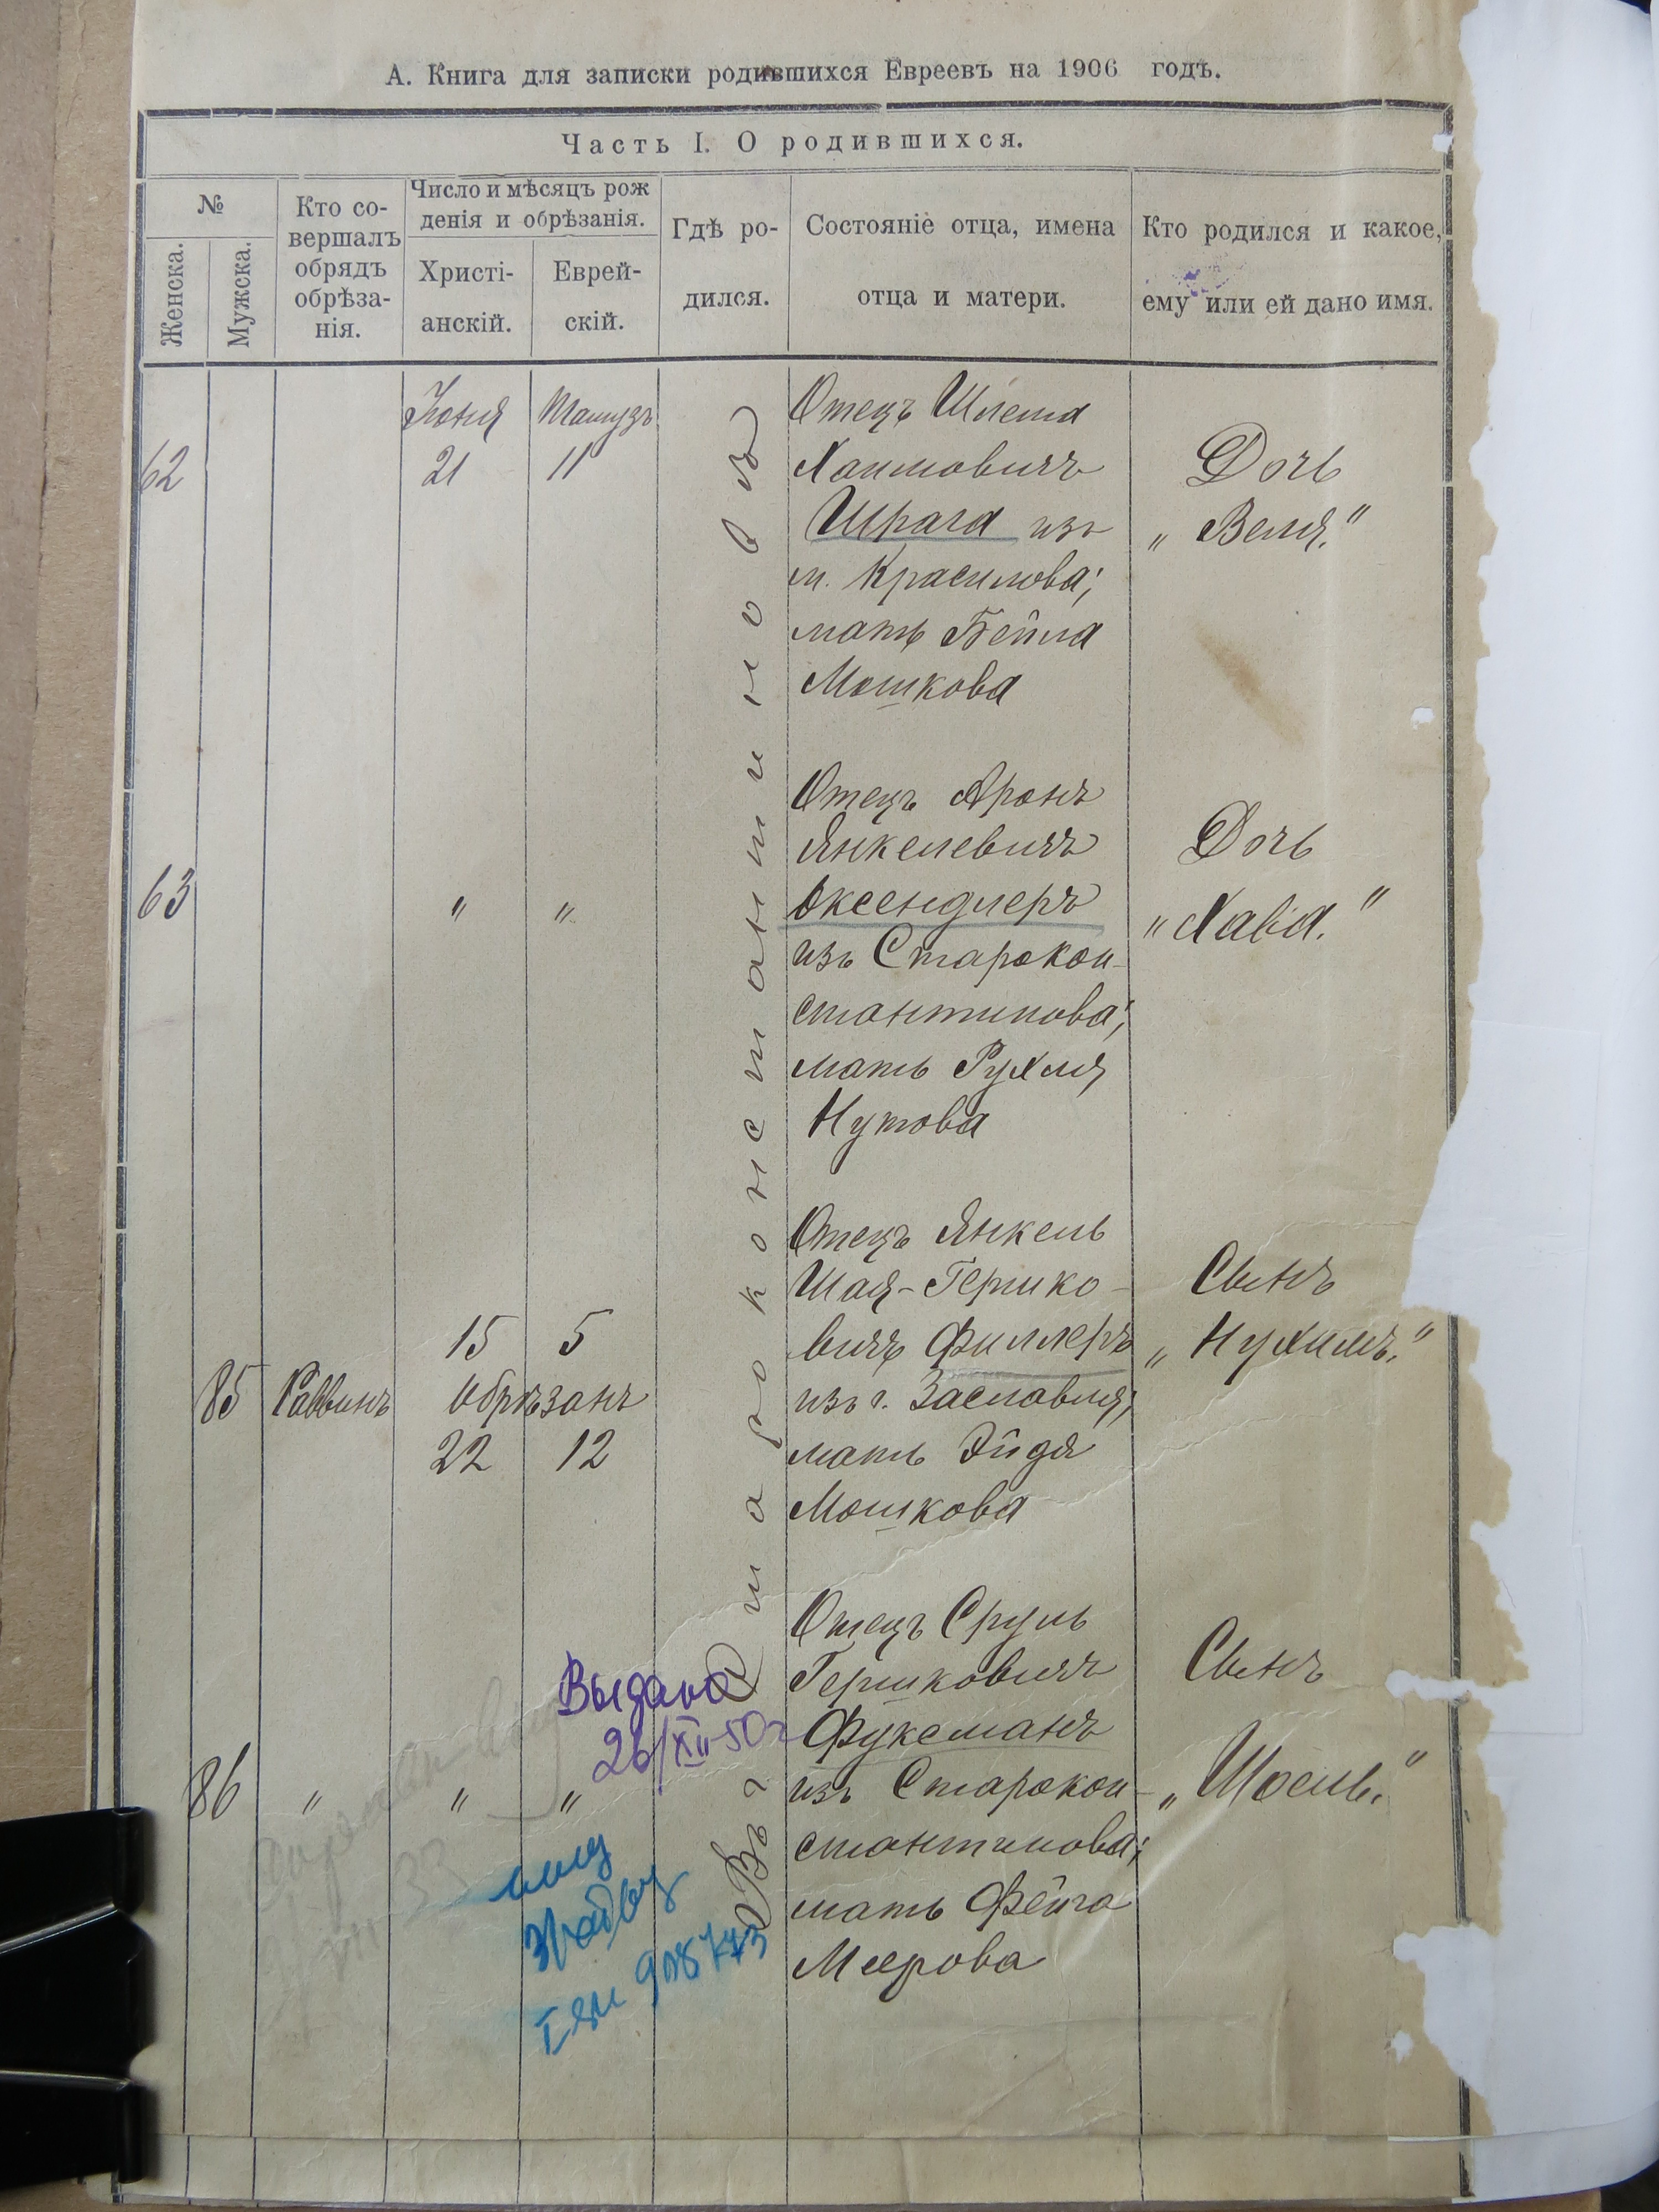 А. Книга для записки родившихся Евреевъ на 1906 годъ.
Часть I. О родившихся.
№
Женска.
Мужска.
Кто со-
вершалъ
обрядъ
обрѣза-
нія.
Число и мѣсяцъ рож
денія и обрѣзанія.
Христі-
анскій.
Еврей-
скій.
Гдѣ ро-
дился.
Состояніе отца, имена
отца и матери.
Кто родился и какое,
ему или ей дано имя.
Въ г. Староконстантиновѣ
62
Іюня
21
Тамузъ
11
Отецъ Шлема
Хаимовичъ
Шрага изъ
м. Красилова;
мать Бейла
Мошкова
Дочь
„Веля."
63
" "
Отецъ Аронъ
Янкелевичъ
Оксендлеръ
изъ Старокон-
стантинова;
мать Рухля
Нутова
Дочь
„Хава."
85 Раввинъ
15 5
Обрѣзанъ
22 12
Отецъ Янкель
Шая-Гершко-
вичъ Филлеръ
изъ г. Заславля;
мать Эйдя
Мошкова
Сынъ
„Нухимъ."
86 " " "
Отецъ Сруль
Гершковичъ
Фуксманъ
изъ Старокон-
стантинова;
мать Фейга
Меерова
Сынъ
„Шоель."
Выдано
26/XII-50г